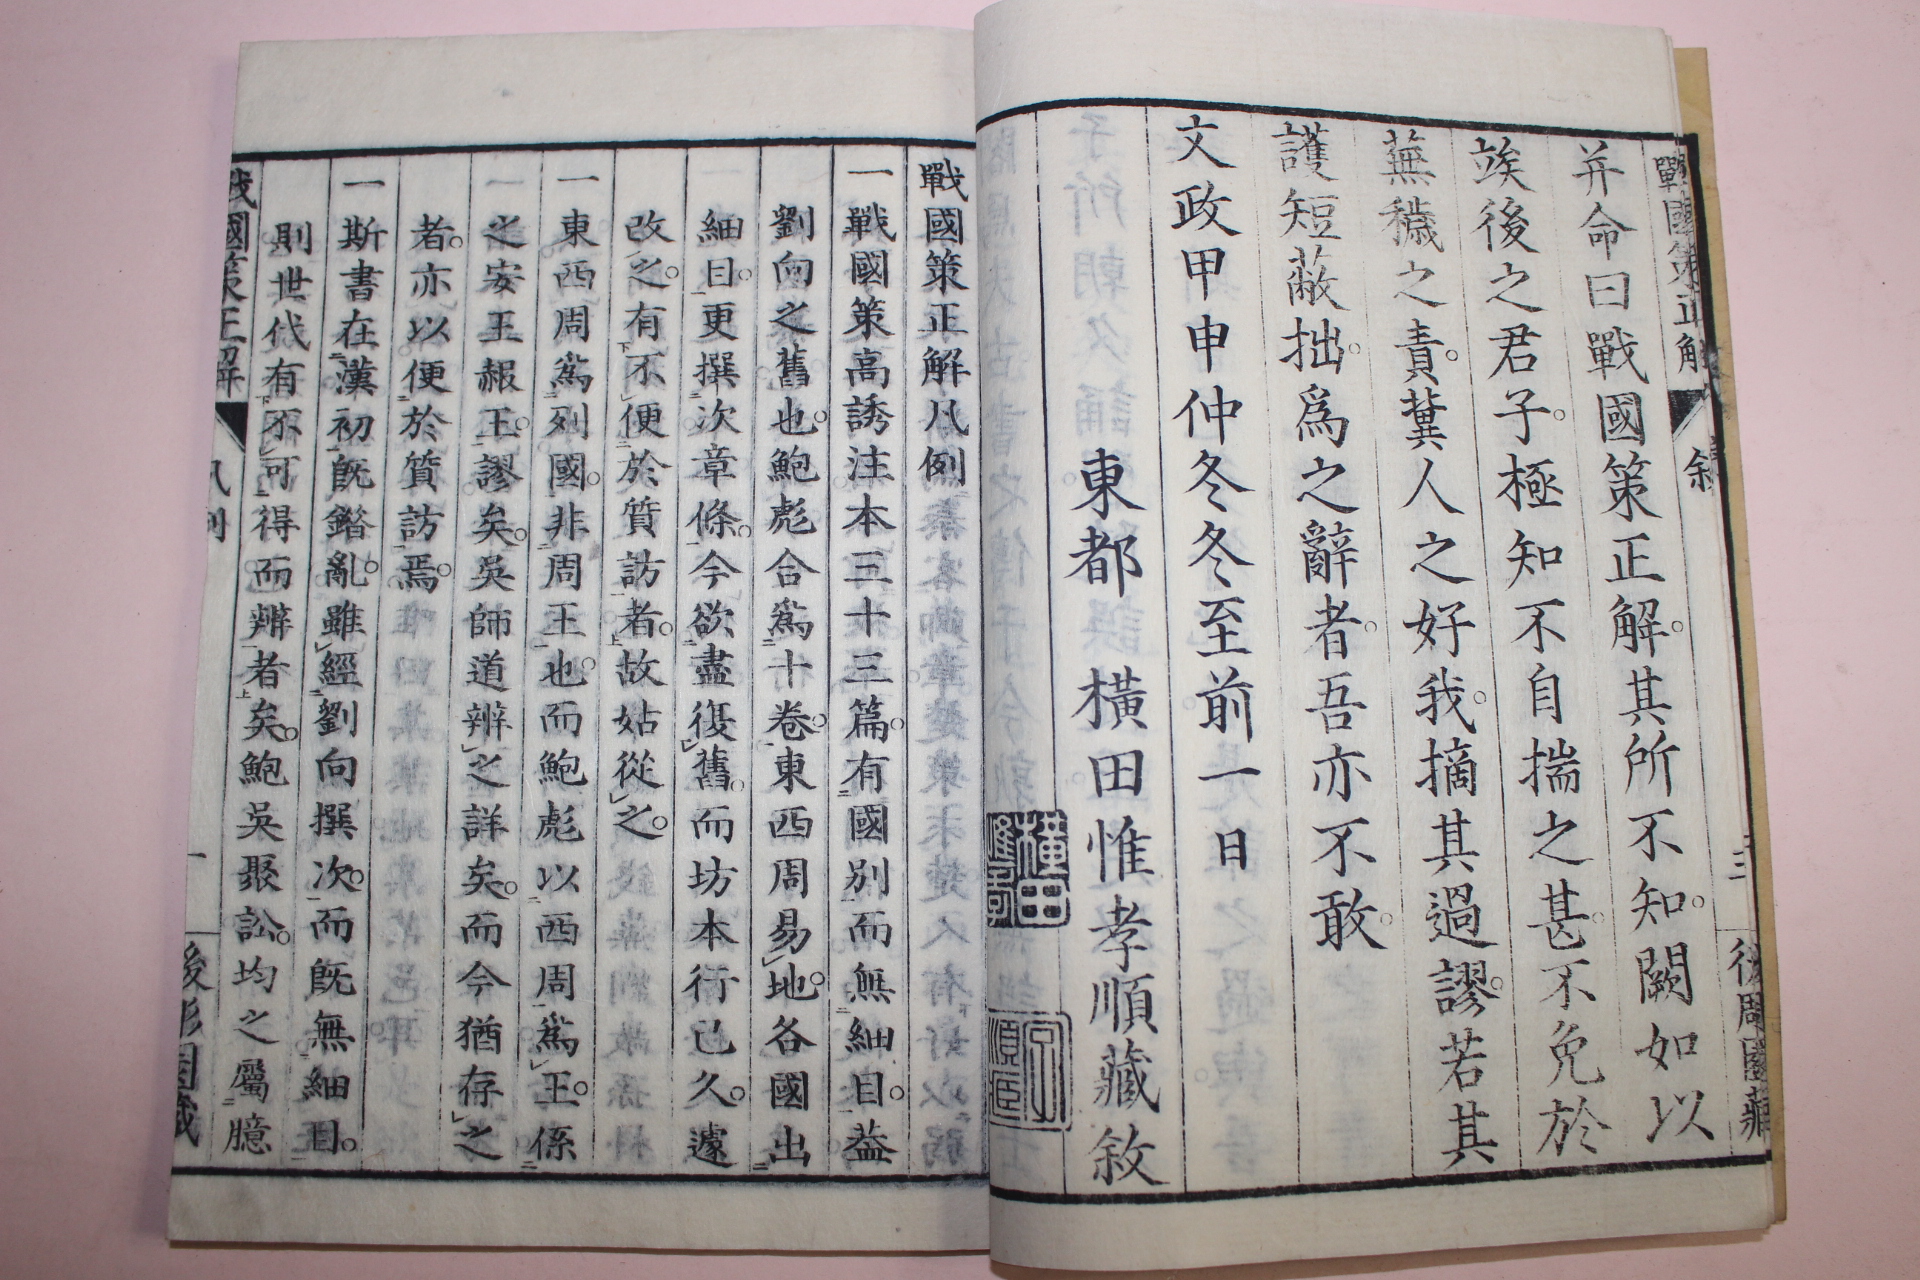 戰國策正解
敘
三
後周園藏
并命曰戰國策正解其所不知闕如以
竢後之君子極知不自揣之甚不免於
蕪穢之責冀人之好我摘其過謬若其
護短蔽拙爲之辭者吾亦不敢
文政甲申仲冬冬至前一日
東都 橫田惟孝順藏敘
橫田惟孝
戰國策正解凡例
一戰國策高誘注本三十三篇有國別而無細目葢
劉向之舊也鮑彪合爲十卷東西周易地各國出
細目更撰次章條今欲盡復舊而坊本行已久遽
改之有不便於質訪者故姑從之
一東西周爲列國非周王也而鮑彪以西周爲王係
之安王赧王謬矣吳師道辨之詳矣而今猶存之
者亦以便於質訪焉
一斯書在漢初既錯亂雖經劉向撰次而既無細目
則世代有不可得而辨者矣鮑吳聚訟均之屬臆
戰國策正解
凡例
一